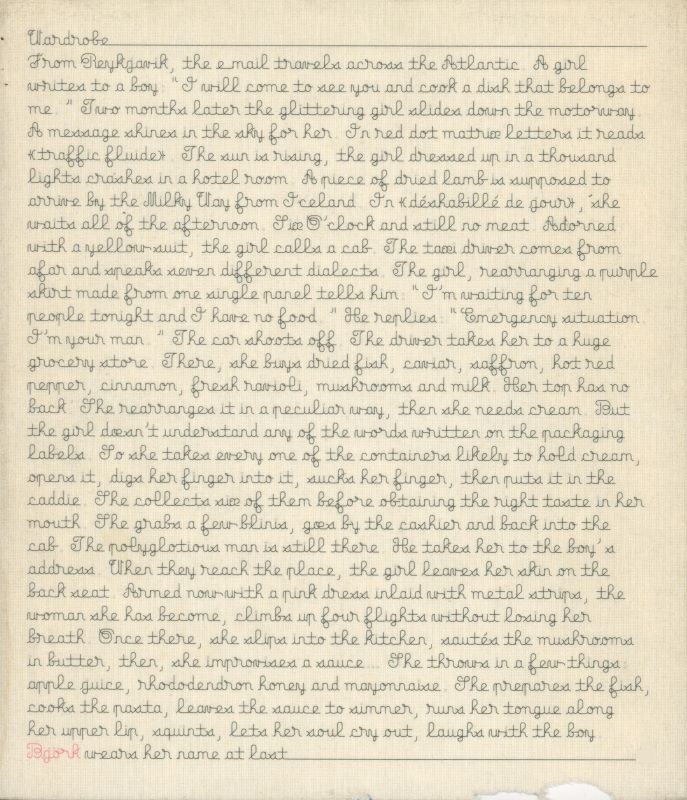 Wardrobe
From Reykjavik, the e mail travels across the Atlantic. A girl
writes to a boy: "I will come to see you and cook a dish that belongs to
me." Two months later the glittering girl slides down the motorway.
A message shines in the sky for her. In red dot matrix letters it reads
«traffic fluide». The sun is rising, the girl dressed up in a thousand
lights crashes in a hotel room. A piece of dried lamb is supposed to
arrive by the Milky Way from Iceland. In «déshabillé de jour», she
waits all of the afternoon. Six O'clock and still no meat. Adorned
with a yellow suit, the girl calls a cab. The taxi driver comes from
afar and speaks seven different dialects. The girl, rearranging a purple
skirt made from one single panel tells him: "I'm waiting for ten
people tonight and I have no food." He replies: "Emergency situation.
I'm your man." The car shoots off. The driver takes her to a huge
grocery store. There, she buys dried fish, caviar, saffron, hot red
pepper, cinnamon, fresh ravioli, mushrooms and milk. Her top has no
back. She rearranges it in a peculiar way, then she needs cream. But
the girl doesn't understand any of the words written on the packaging
labels. So she takes every one of the containers likely to hold cream,
opens it, digs her finger into it, sucks her finger, then puts it in the
caddie. She collects six of them before obtaining the right taste in her
mouth. She grabs a few blinis, goes by the cashier and back into the
cab. The polyglotious man is still there. He takes her to the boy's
address. When they reach the place, the girl leaves her skin on the
back seat. Armed now with a pink dress inlaid with metal strips, the
woman she has become, climbs up four flights without losing her
breath. Once there, she slips into the kitchen, sautés the mushrooms
in butter, then, she improvises a sauce... She throws in a few things:
apple juice, rhododendron honey and mayonnaise. She prepares the fish,
cooks the pasta, leaves the sauce to simmer, runs her tongue along
her upper lip, squints, lets her soul cry out, laughs with the boy.
Bjork wears her name at last